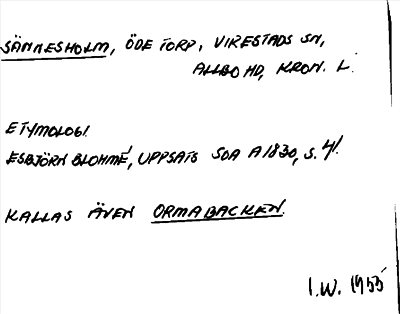 SÄNNESHOLM, ÖDETORP, VIRESTADS SN,
ALLBO HD, KRON. L.
ETYMOLOGI.
ESBJÖRN BLOHMÉ, UPPSATS SOA A1830, S. 41.
KALLAS ÄVEN ORMABACKEN.
I.W. 1955